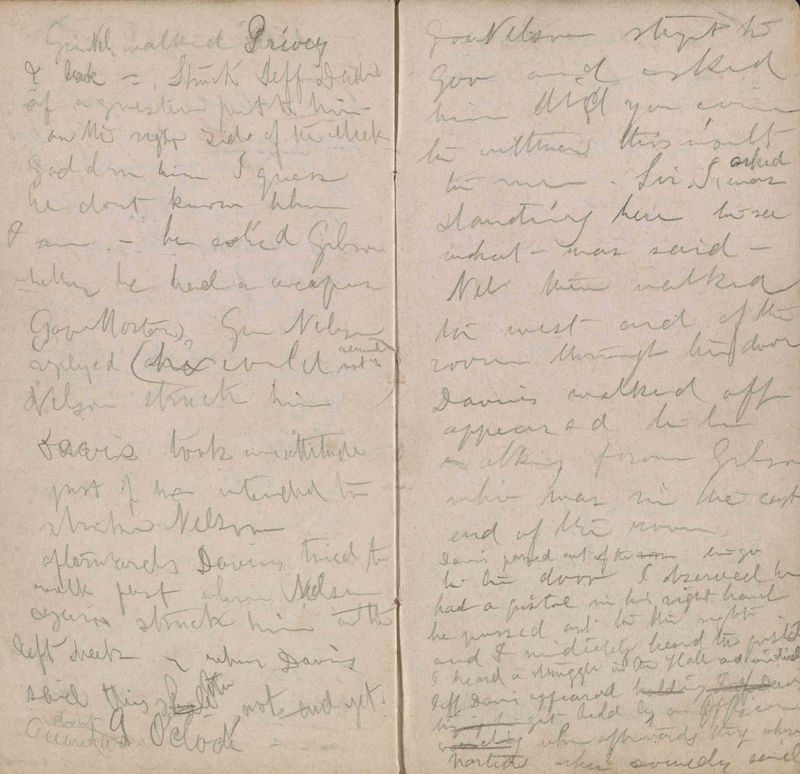 Gen Nel walked Privcy
& back = , Struck Jeff Davis
of a question put to him
on the right side of the cheek
God dm him I guess
he dont know who
I am - he asked Gibson
he had a weapon
Gov Morton, Gen Nelson
replyed (
Nelson struck him
Davis took attitude
just if he intended to
strike Nelson
afterwards Davis tried to
walk past when Nelson
again struck him on the
left cheek & when Davis
said this shall not end yet
about
9 O'clock
Gen Nelson stept to
Gov and asked
him did you come
to witness this insult
to me . Sir, I was asked
standing here to see
what - was said -
Nel then walked
to west end of the
room through the door
Davis walked off
appeared to be
talking from Gibson
who was in the east
end of the room
Davis passed out of the room to go
to the door I observed he
had a pistol in his right hand
he passed out to the right
and I heard the pistol
I heard a struggle in the Hall and
Jeff Davis appeared holding
get held by an officer
when afterwards they where
parted when somebody said